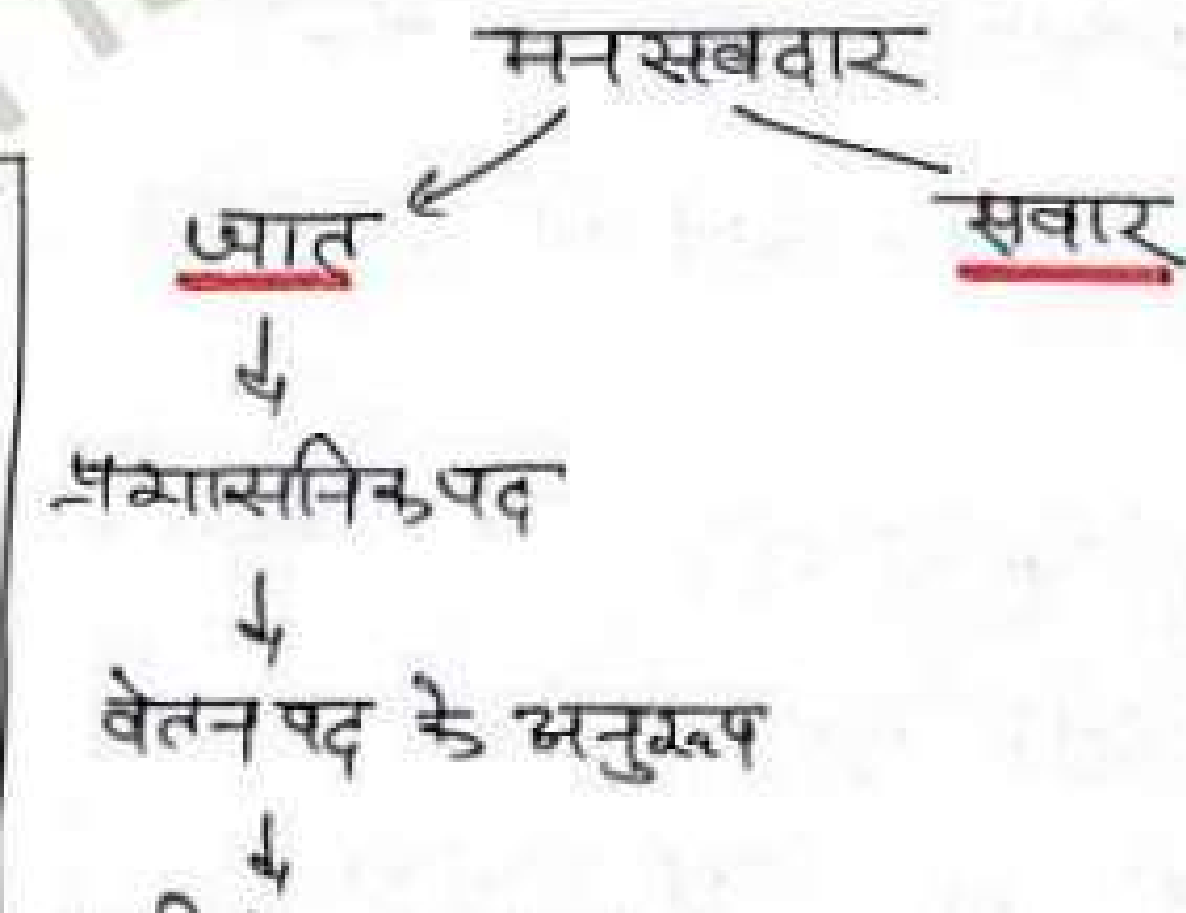 मनसबदार
जात सवार
प्रशासनिक पद
वेतन पद के अनुरूप